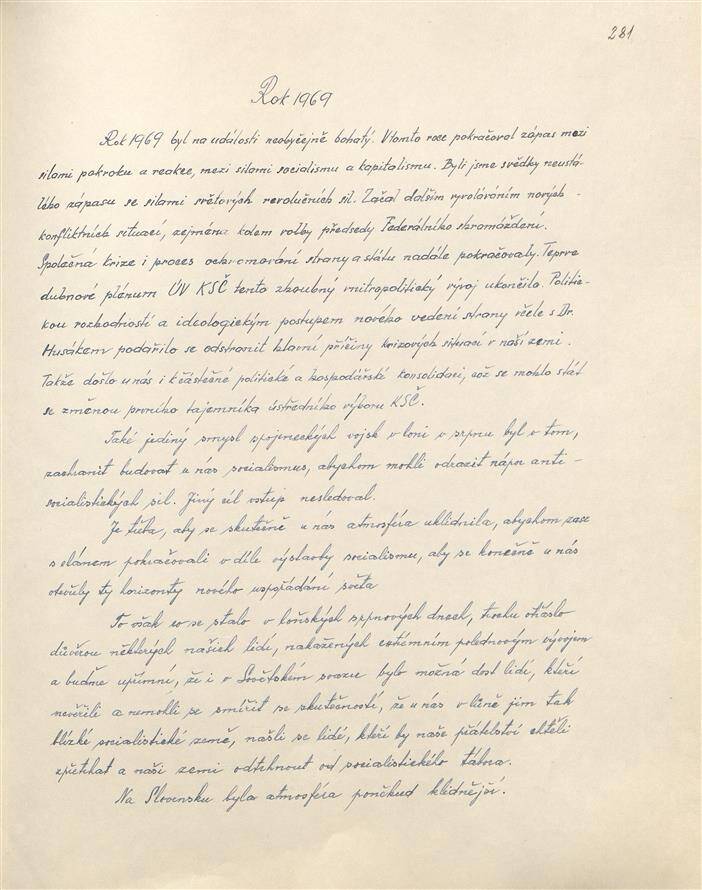 281
Rok 1969
Rok 1969 byl na události neobyčejně bohatý. V tomto roce pokračoval zápas mezi
silami pokroku a reakce, mezi silami socialismu a kapitalismu. Byli jsme svědky neustá-
lého zápasu se silami světových revolučních sil. Začal dalším vyvoláváním nových
konfliktních situací, zejména kolem volby předsedy Federálního shromáždění.
Společná krize i proces ochromování strany a státu nadále pokračovaly. Teprve
dubnové plénum ÚV KSČ tento zhoubný vnitropolitický vývoj ukončilo. Politic-
kou rozhodností a ideologickým postupem nového vedení strany včele s Dr.
Husákem podařilo se odstranit hlavní příčiny krizových situací v naší zemi.
Takže došlo u nás i k částečné politické a hospodářské konsolidaci, což se mohlo stát
se změnou prvního tajemníka ústředního výboru KSČ.
Také jediný smysl spojeneckých vojsk v loni v srpnu byl v tom,
zachránit budovat u nás socialismus, abychom mohli odrazit nápor anti-
socialistických sil. Jiný cíl vstup nesledoval.
Je třeba, aby se skutečně u nás atmosféra uklidnila, abychom zase
s elánem pokračovali v díle výstavby socialismu, aby se konečně u nás
otevřely ty horizonty nového uspořádání světa
To však co se stalo v loňských srpnových dnech, trochu otřáslo
důvěrou některých našich lidí, nakažených extémním polednovým vývojem
a buďme upřímní, že i v Sovětském svazu bylo možná dost lidí, kteří
nevěřili a nemohli se smířit se skutečností, že u nás v lůně jim tak
blízké socialistické země, našli se lidé, kteří by naše přátelství chtěli
zpřetrhat a naši zemi odtrhnout od socialistického tábora.
Na Slovensku byla atmosféra poněkud klidnější.